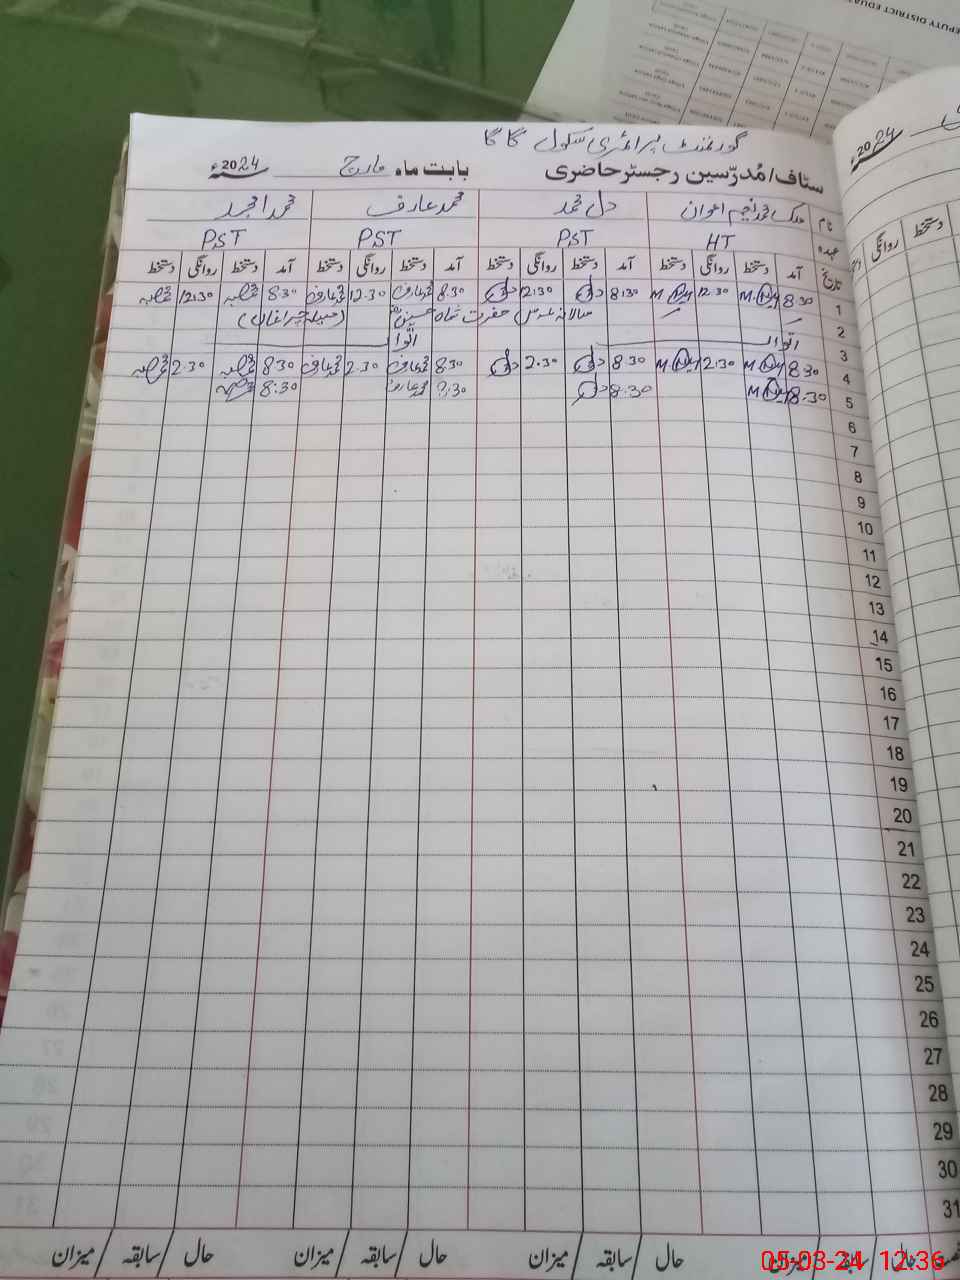 EPUTY DISTRICT EDUCAT
گورنمنٹ پرائمری سکول گاگا
سٹاف/مُدرّسین رجسٹر حاضری بابت ماہ مارچ 2024ء
2024ء
نام ملک محمد نجیم اعوان دل محمد محمد عارف محمد امجد
عہدہ HT PST PST PST
تاریخ آمد دستخط روانگی دستخط آمد دستخط روانگی دستخط آمد دستخط روانگی دستخط آمد دستخط روانگی دستخط
روانگی دستخط
1 8.30 12.30 8.30 12.30 8.30 محمد عارف 12.30 محمد عارف 8.30 12.30
2 سالانہ عرس حضرت شاہ حسین (میلہ چراغاں)
3 اتوار اتوار
4 8.30 2.30 8.30 2.30 8.30 محمد عارف 2.30 محمد عارف 8.30 2.30
5 8.30 8.30 8.30 محمد عارف 8.30
6
7
8
9
10
11
12
13
14
15
16
17
18
19
20
21
22
23
24
25
26
27
28
29
30
31
حال سابقہ میزان حال سابقہ میزان حال سابقہ میزان حال سابقہ میزان
05-03-24 12:36